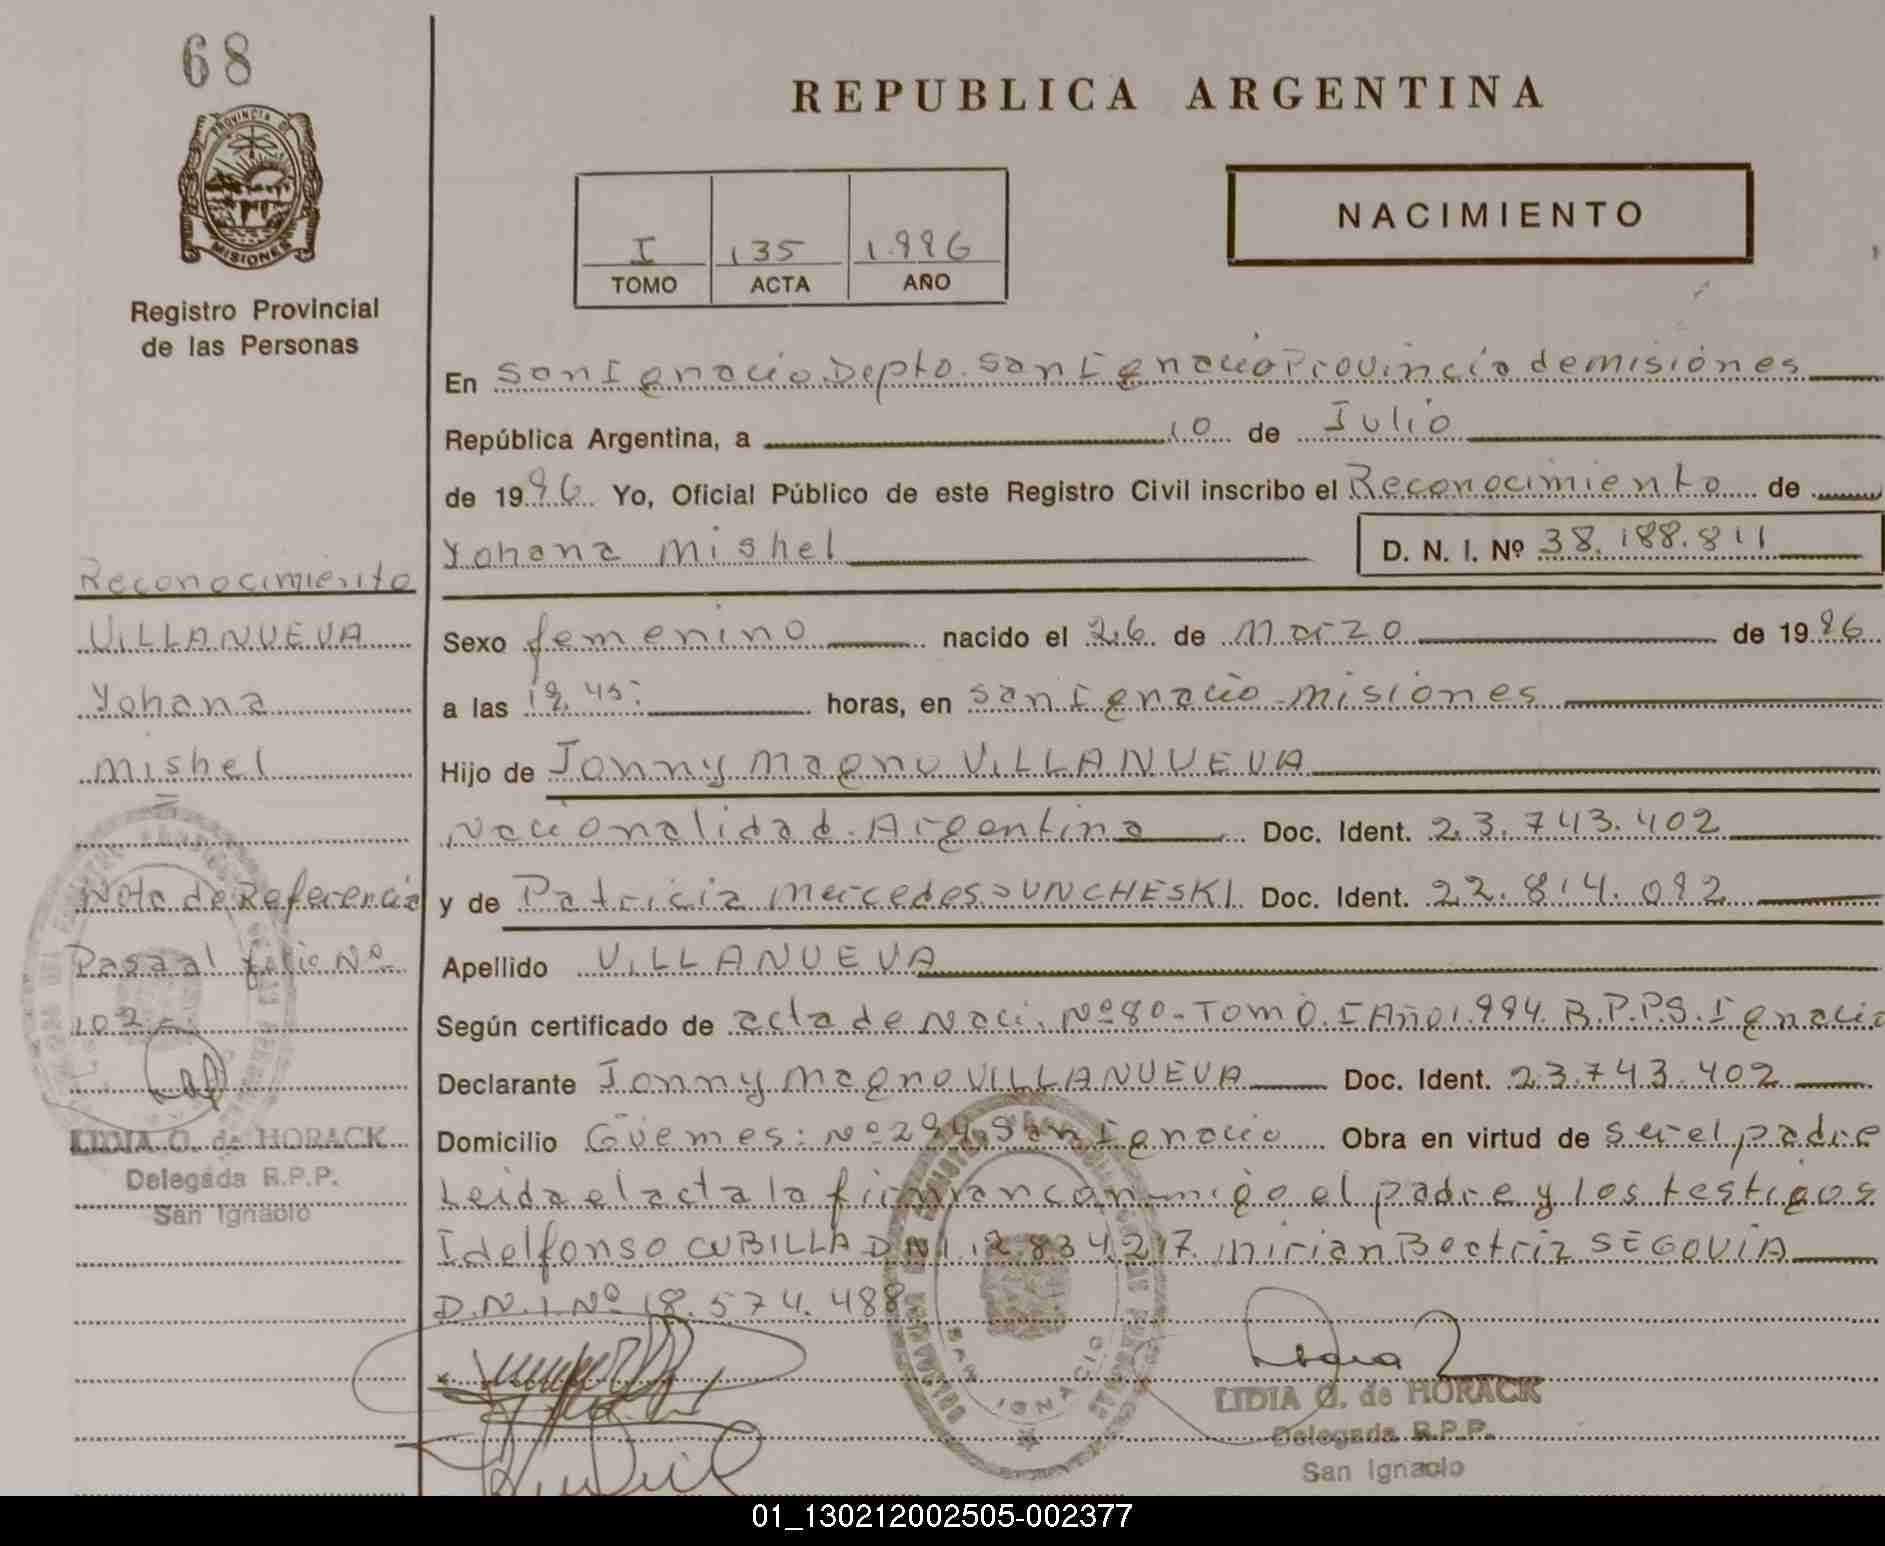 68
PROVINCIA D
MISIONES
Registro Provincial
de las Personas
REPUBLICA ARGENTINA
NACIMIENTO
I 135 1.996
TOMO ACTA AÑO
En San Ignacio Depto. San Ignacio Provincia de misiones
República Argentina, a 10 de Julio
de 1996 Yo, Oficial Público de este Registro Civil inscribo el Reconocimiento de
Yohana Mishel D. N. I. Nº 38.188.811
Sexo femenino nacido el 26 de Marzo de 1996
a las 19,45: horas, en San Ignacio misiones
Hijo de Jonny Magno VILLANUEVA
Nacionalidad Argentina Doc. Ident. 23.743.402
y de Patricia Mercedes SUNCHESKI Doc. Ident. 22.814.092
Apellido VILLANUEVA
Según certificado de acta de Naci. Nº 80 - Tomo I Año 1.994. R.P.P.S. Ignacio
Declarante Jonny Magno VILLANUEVA Doc. Ident. 23.743.402
Domicilio Güemes: Nº 294. San Ignacio Obra en virtud de ser el padre
Leida el acta la firman conmigo el padre y los testigos
Idelfonso CUBILLA DNI 12.834.217. Mirian Beatriz SEGOVIA
D.N.I. Nº 18.574.488
Reconocimiento
VILLANUEVA
Yohana
Mishel
Nota de Referencia
Pasa al folio Nº
102
LIDIA G. de HORACK
Delegada R.P.P.
San Ignacio
SAN IGNACIO
LIDIA G. de HORACK
Delegada R.P.P.
San Ignacio
01_130212002505-002377